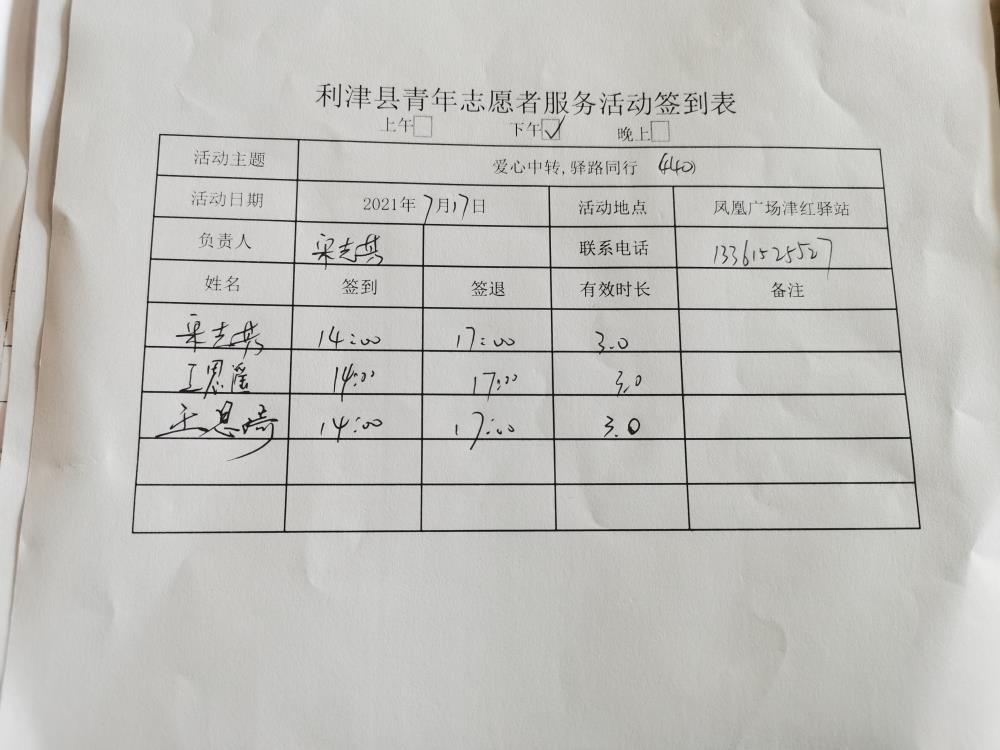 利津县青年志愿者服务活动签到表
上午□ 下午☑ 晚上□
活动主题 爱心中转,驿路同行 (440)
活动日期 2021年7月17日 活动地点 凤凰广场津红驿站
负责人 联系电话 13361525527
姓名 签到 签退 有效时长 备注
14:00 17:00 3.0
王恩瑶 14:00 17:00 3.0
王恩琦 14:00 17:00 3.0